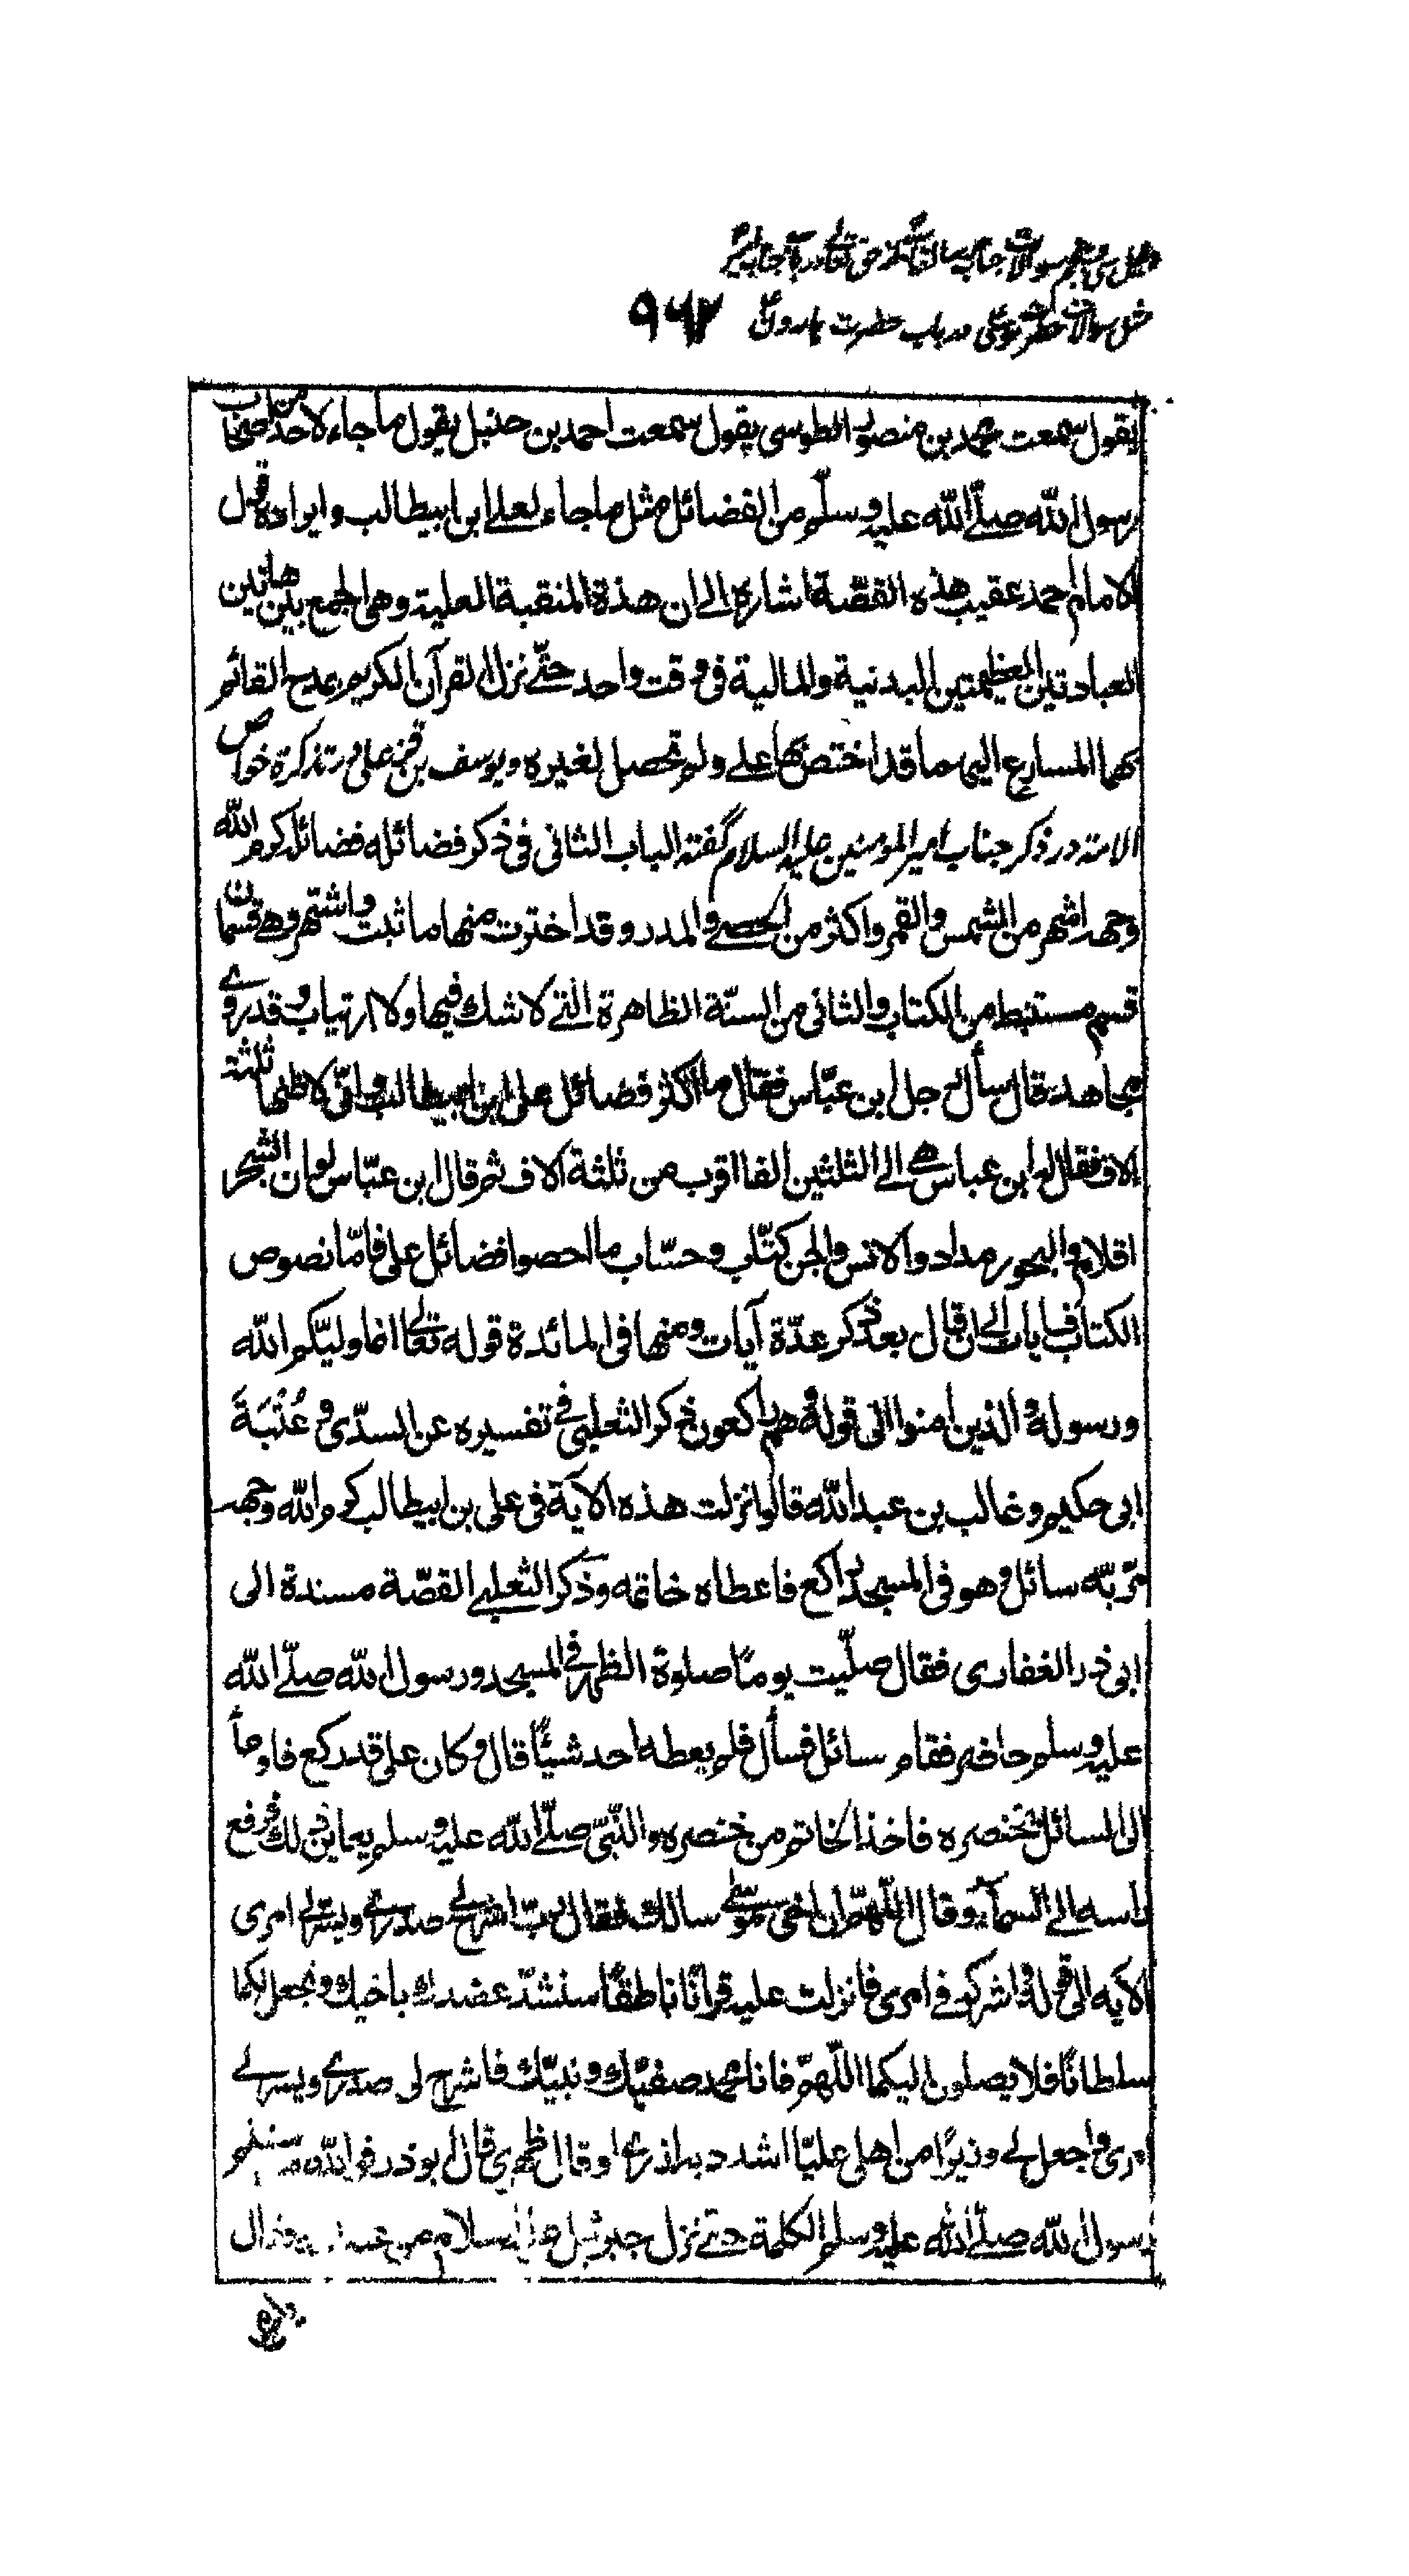 دلیل سی و پنجم سوالات جناب رسالتمآب از حق تعالی درباره جناب امیر
مثل سوالات حضرت موسی در باب حضرت هارون ۹۶۷
یقول سمعت محمد بن منصور الطوسی یقول سمعت احمد بن حنبل یقول ما جاء لاحد من اصحاب
رسول الله صلّی الله علیه وسلّم من الفضائل مثل ما جاء لعلی ابن ابیطالب وایراده قول
الامام احمد عقیب هذه القصّة اشارة الی ان هذة المنقبة العلیة وهی الجمع بین هاتین
العبادتین العظیمتین البدنیة والمالیة فی وقت واحد حتّی نزل القرآن الکریم بمدح القائم
بهما المسارع الیهما قد اختص بها علی ولم تحصل لغیره ویوسف بن قزعلی در تذکرة خواص
الامه در ذکر جناب امیر المؤمنین علیه السلام گفته الباب الثانی فی ذکر فضائله فضائله کرم الله
وجهه اشهر من الشمس والقمر واکثر من الحصی والمدر وقد اخترت منها ما ثبت واشتهر وهی قسمان
قسم مستنبط من الکتاب والثانی من السنّة الظاهرة التی لا شك فیها ولا ارتیاب وقد روی
مجاهد قال سأل رجل ابن عبّاس فقال ما اکثر فضائل علی ابن ابیطالب وانّی لاظنها ثلثة
الاف فقال له ابن عباس هی الی الثلثین الفا اقرب من ثلثة الاف ثم قال ابن عبّاس لو ان الشجر
اقلام والبحور مداد والانس والجن کتّاب وحسّاب ما احصوا فضائل علی فامّا نصوص
الکتاب فایات الی ان قال بعد ذکر عدّة آیات ومنها فی المائدة قوله تعالی انما ولیّکم الله
ورسوله والذین امنوا الی قوله وهم راکعون ذکر الثعلبی فی تفسیره عن السدّی وعُتْبَةَ
ابی حکیم وغالب بن عبد الله قالوا نزلت هذه الآیة فی علی بن ابیطالب کرم الله وجهه
مرّ به سائل وهو فی المسجد راکع فاعطاه خاتمه وذکر الثعلبی القصّة مسندة الی
ابی ذر الغفاری فقال صلّیت یومًا صلوة الظهر فی المسجد ورسول الله صلّی الله
علیه وسلم حاضر فقام سائل فسأل فلم یعطه احد شیئًا قال وکان علی قد رکع فاومأ
الی السائل بخنصره فاخذ الخاتم من خنصره والنّبیّ صلّی الله علیه وسلم یعاین ذلك فرفع
رأسه الی السمآء وقال اللّهمّ ان اخی موسٰی سالك فقال رب اشرح لی صدری ویسر لی امری
الآیه الی قوله واشرکه فی امری فانزلت علیه قرآنًا ناطقًا سنشدّ عضدك باخیك ونجعل لکما
سلطانًا فلا یصلون الیکما اللّهمّ فانا محمد صفیّك ونبیّك فاشرح لی صدری ویسر لی
امری واجعل لی وزیرًا من اهلی علیّا اشدد به ازری او قال ظهری قال ابو ذر فوالله ما استتم
رسول الله صلّی الله علیه وسلم الکلمة حتی نزل جبرئیل علیه السلام من عند الله فقال